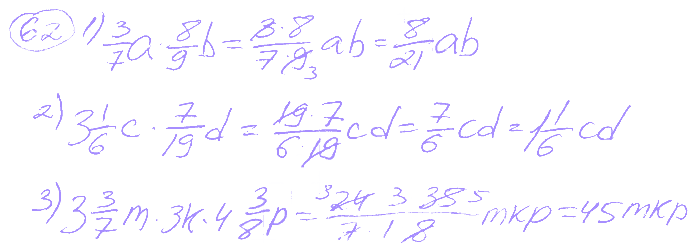 62 1) 3/7 a · 8/9 b = 3·8/7·9 3 ab = 8/21 ab
2) 3 1/6 c · 7/19 d = 19·7/6·19 cd = 7/6 cd = 1 1/6 cd
3) 3 3/7 m · 3k · 4 3/8 p = 3 24 3 35 5/7·1 8 mkp = 45 mkp